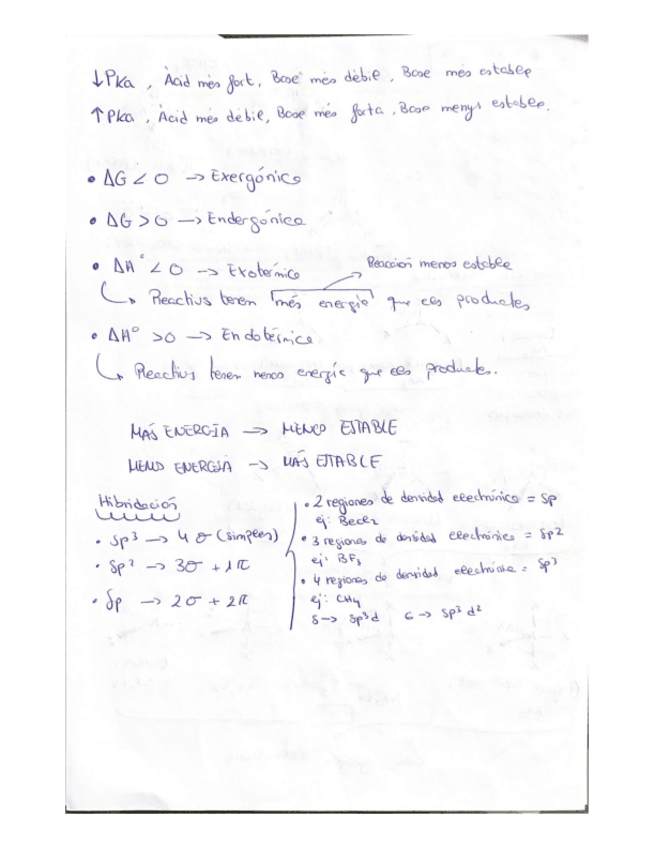 ↓Pka, Àcid més fort, Base més dèbil, Base més estable
↑Pka, Àcid més dèbil, Base més forta, Base menys estable.
• ΔG < 0 → Exergónica
• ΔG > 0 → Endergónica
• ΔH° < 0 → Exotérmica
Reacción menos estable
↳ Reactius tenen més energia que els productes
• ΔH° > 0 → Endotérmica
↳ Reactius tenen menos energía que els productes.
MÁS ENERGÍA → MENOS ESTABLE
MENOS ENERGÍA → MÁS ESTABLE
Hibridación
• sp³ → 4 σ (simples)
• sp² → 3σ + 1π
• sp → 2σ + 2π
• 2 regiones de densidad electrónica = sp
ej: BeCl2
• 3 regiones de densidad electrónica = sp2
ej: BF3
• 4 regiones de densidad electrónica = sp3
ej: CH4
5 → sp³d 6 → sp³d²